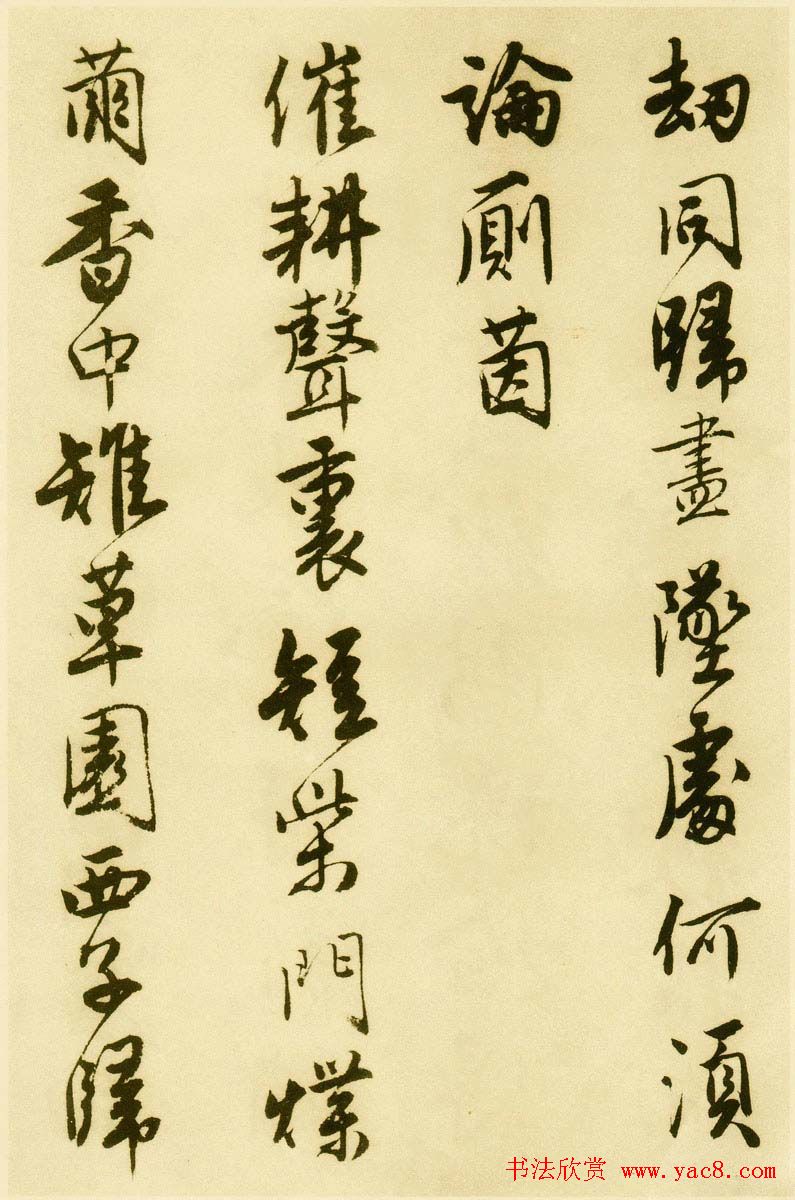 刼同歸盡墜處何須
論廁茵
催耕聲裏短柴門煠
繭香中雉草園西子歸
书法欣赏 www.yac8.com